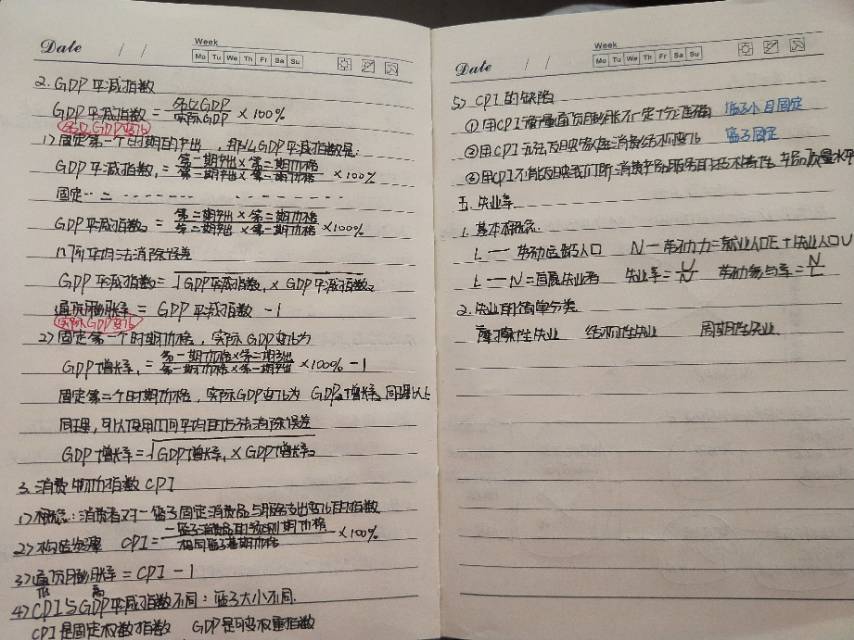 Date / /
Week
Mo Tu We Th Fr Sa Su
2. GDP 平减指数
GDP 平减指数 = 名义GDP / 实际GDP × 100%
名义GDP变化
1> 固定第一个时期的产出，那么GDP平减指数是:
GDP 平减指数₁ = 第一期产出 × 第二期价格 / 第一期产出 × 第一期价格 × 100%
固定 … 二 - - - - - -
GDP 平减指数₂ = 第二期产出 × 第二期价格 / 第二期产出 × 第一期价格 × 100%
几何平均法消除误差
GDP 平减指数 = √GDP平减指数₁ × GDP平减指数₂
通货膨胀率 = GDP 平减指数 - 1
实际GDP变化
2> 固定第一个时期价格，实际GDP变化为
GDP 增长率₁ = 第一期价格×第二期产出 / 第一期价格×第一期产出 × 100% - 1
固定第二个时期价格，实际GDP变化为 GDP增长率₂ 同理以上
同理，可以使用几何平均的方法消除误差
GDP增长率 = √GDP增长率₁ × GDP增长率₂
3. 消费物价指数 CPI
1> 概念：消费者对一篮子固定消费品与服务支出变化的指数
2> 构造处理 CPI = 一篮子消费品的 期价格 / 相同篮子基期价格 × 100%
3> 通货膨胀率 = CPI - 1
4> CPI与GDP平减指数不同：篮子大小不同.
CPI是固定权数指数 GDP是可变权重指数
Date / /
Week
Mo Tu We Th Fr Sa Su
5> CPI 的缺陷
①用CPI衡量通货膨胀不一定十分准确 篮子小且固定
②用CPI无法反映家庭消费结构变化 篮子固定
③用CPI不能反映我们所消费产品服务 产品质量水平
五. 失业率
1. 基本概念
L — 劳动适龄人口 N — 劳动力 = 就业人口E + 失业人口U
L — N = 自愿失业者 失业率 = U/N 劳动参与率 = N/L
2. 失业的简单分类
摩擦性失业 结构性失业 周期性失业